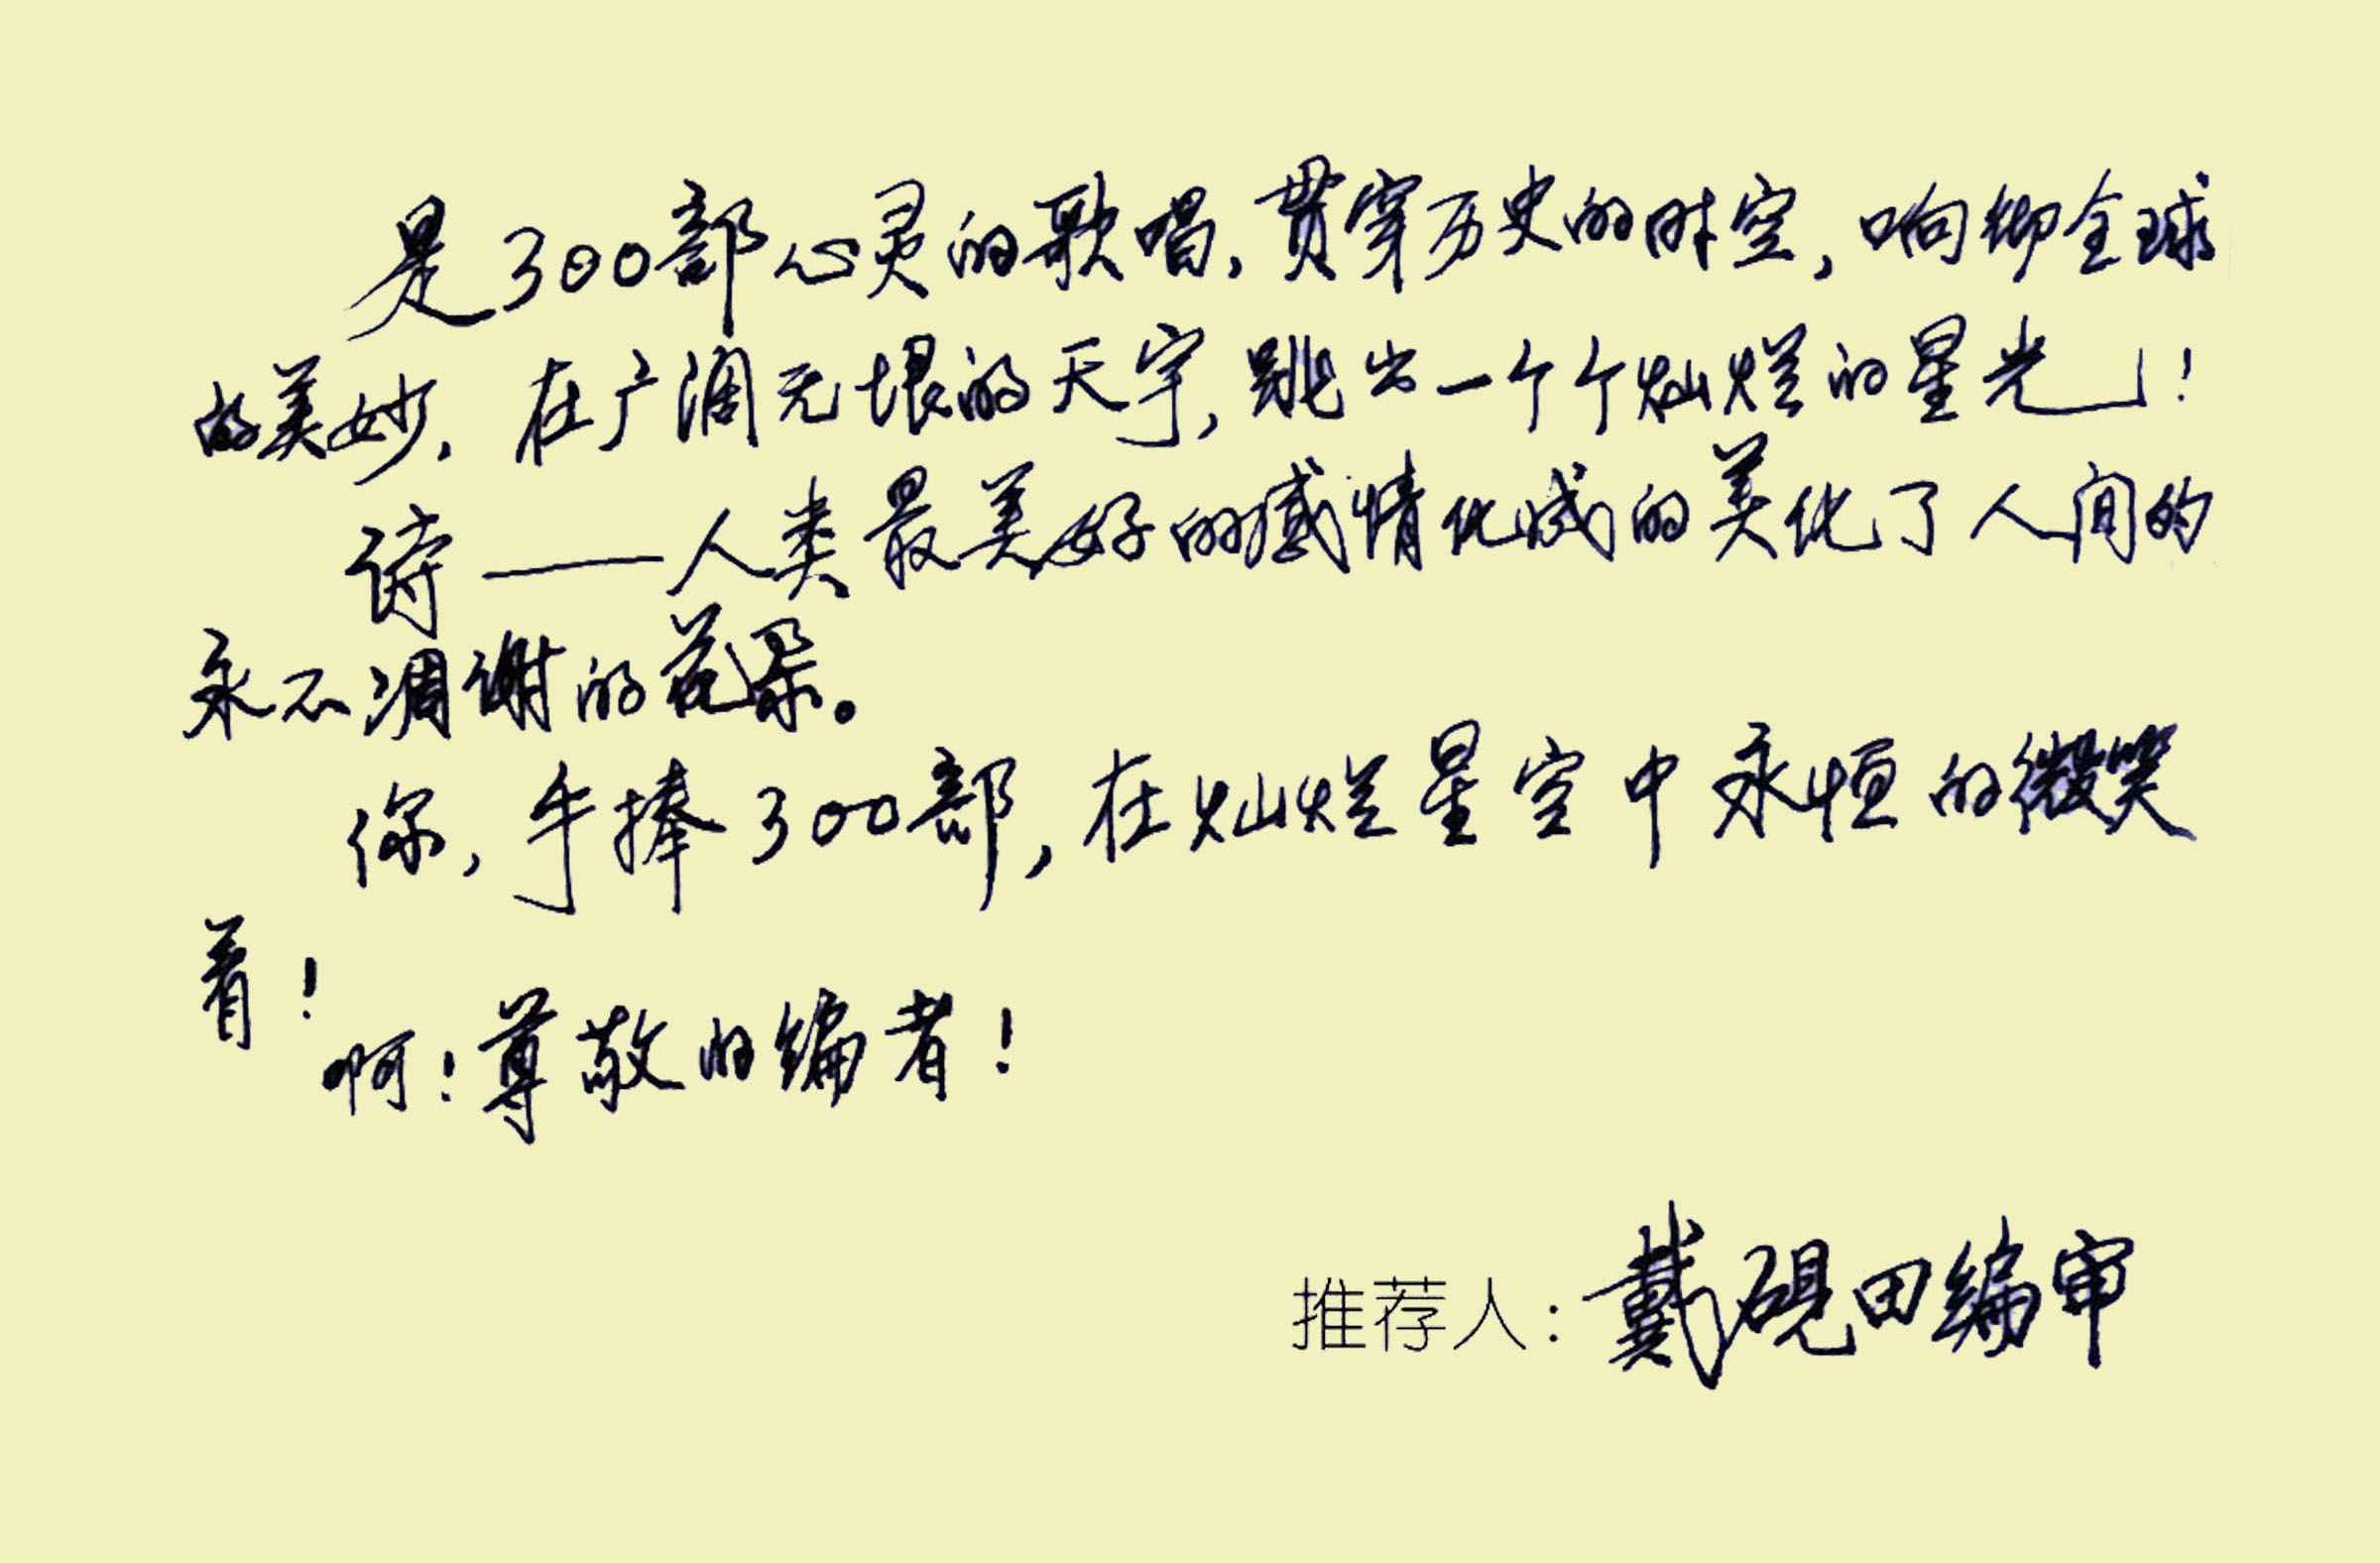 是300部心灵的歌唱,贯穿历史的时空,响彻全球
的美妙,在广阔无垠的天宇,跳出一个个灿烂的星光!
诗——人类最美好的感情化成的美化了人间的
永不凋谢的花朵。
你,手捧300部,在灿烂星空中永恒的微笑
着!
啊!尊敬的编者!
推荐人:戴砚田编审